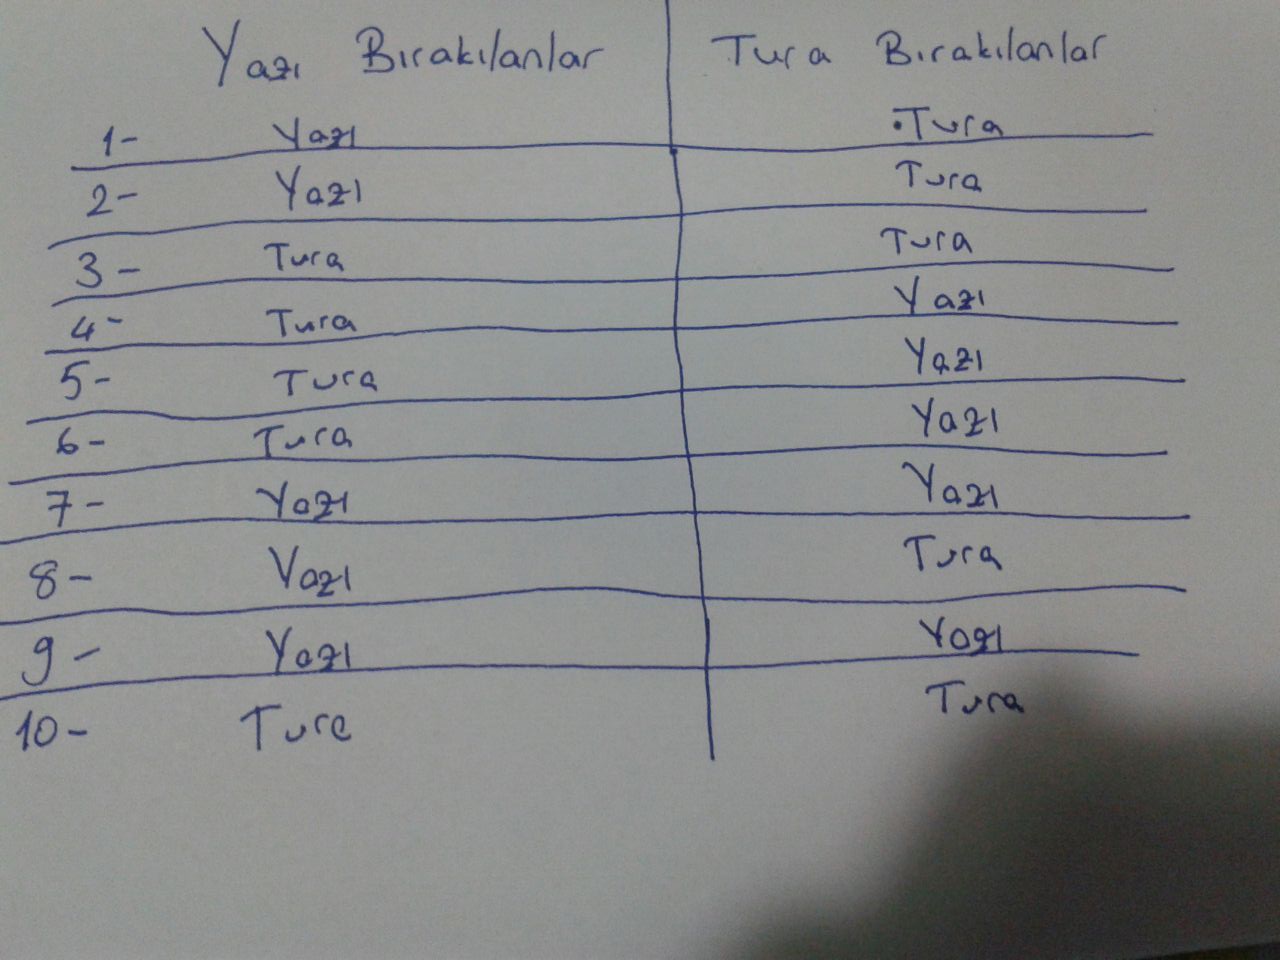 Yazı Bırakılanlar Tura Bırakılanlar
1- Yazı Tura
2- Yazı Tura
3- Tura Tura
4- Tura Yazı
5- Tura Yazı
6- Tura Yazı
7- Yazı Yazı
8- Yazı Tura
9- Yazı Yazı
10- Tura Tura